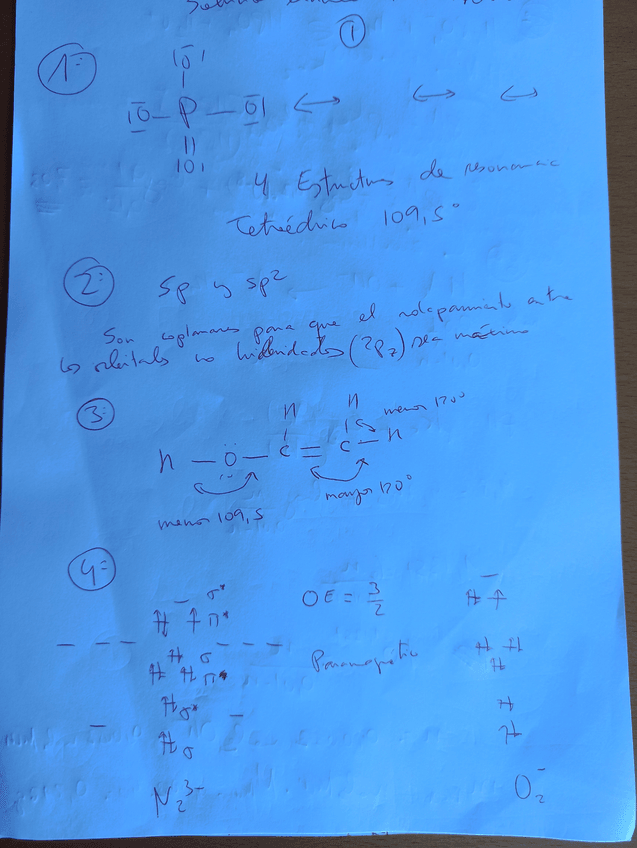 ①
1=
|O|
|O — P — O| ↔ ↔ ↔
||
|O|
4 Estructuras de resonancia
Tetraédrico 109,5°
2= sp y sp²
Son coplanares para que el solapamiento entre
los orbitales no hibridados (2p_z) sea máximo
3=
H H menor 120°
H — Ö — C = C — H
menor 109,5 mayor 120°
4=
σ* OE = 3/2
π*
σ Paramagnético
π*
σ*
σ
N₂³⁻ O₂⁻